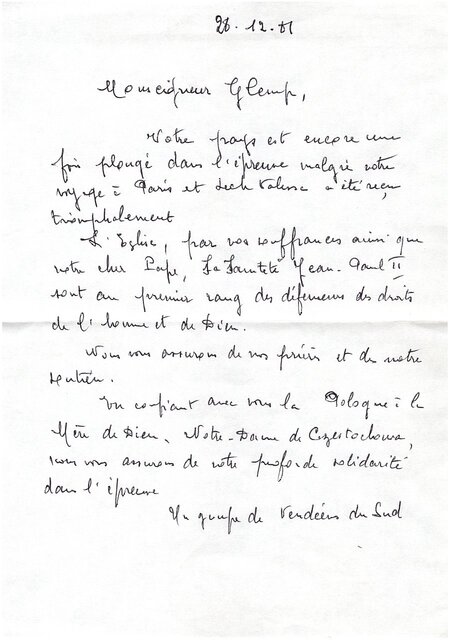 28.12.81
Monseigneur Glemp,
Votre pays est encore une
fois plongé dans l'épreuve malgré votre
voyage à Paris et Lech Valesa a été reçu
triomphalement
L'Eglise, par vos souffrances ainsi que
notre cher Pape, Sa Sainteté Jean-Paul II
sont au premier rang des défenseurs des droits
de l'homme et de Dieu.
Nous vous assurons de nos prières et de notre
soutien.
En confiant avec vous la Pologne à la
Mère de Dieu, Notre-Dame de Czestochowa,
nous vous assurons de notre profonde solidarité
dans l'épreuve
Un groupe de Vendéens du Sud